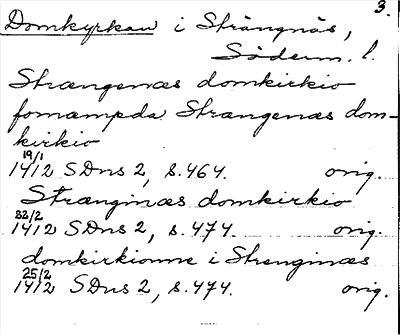 3.
Domkyrkan i Strängnäs,
Söderm. l.
Strængenæs domkirkio
fornæmpda Strangenæs dom-
kirkio
19/1
1412 SDns 2, s. 464. orig.
Stranginæs domkirkio
22/2
1412 SDns 2, s. 474. orig.
domkirkionne i Strenginæs
25/2
1412 SDns 2, s. 474. orig.